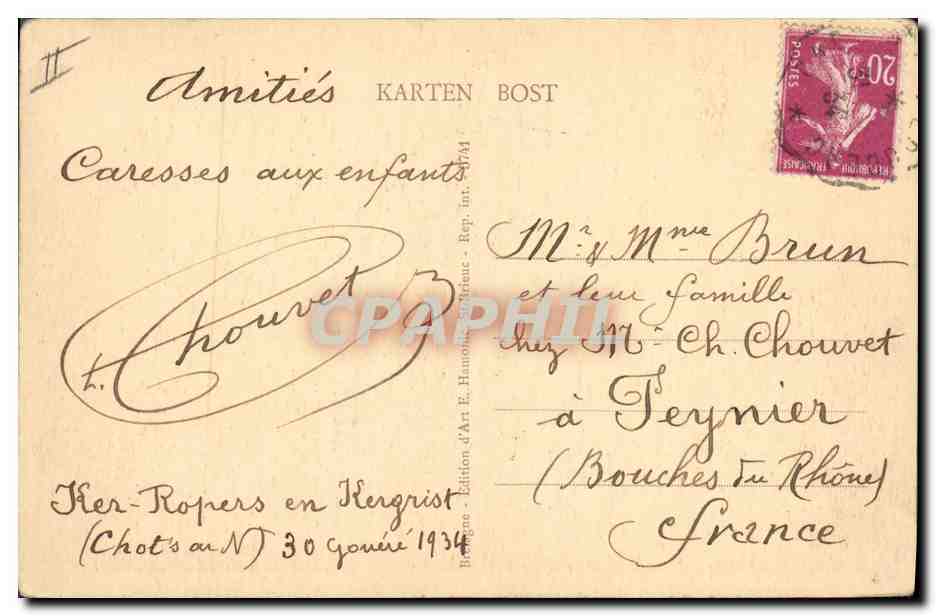 II
Amitiés
KARTEN BOST
Caresses aux enfants
L. Chouvet
Ker-Ropers en Kergrist
30 Gouéré 1934
Bretagne - Edition d'Art E. Hamonic, St-Brieuc - Rep. int.
20
POSTES
REPUBLIQUE FRANÇAISE
Mr & Mme Brun
et leur famille
chez Mr Ch. Chouvet
à Peynier
(Bouches du Rhône)
France
CPAPHIL